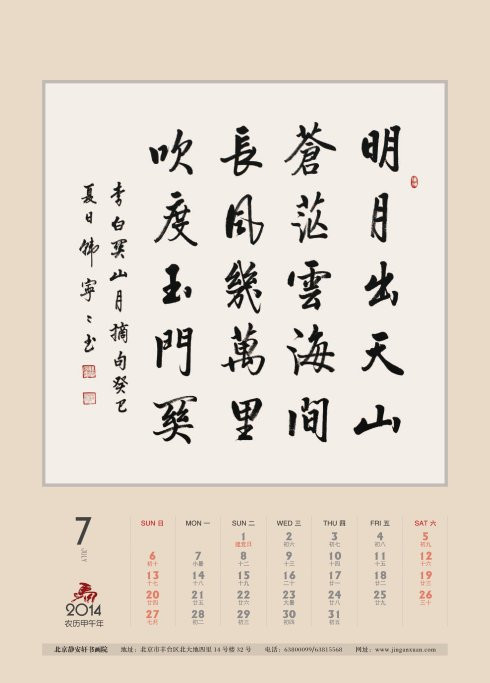 明月出天山
蒼茫雲海間
長風幾萬里
吹度玉門関
李白関山月摘句癸巳
夏日韩寧寧书
7
JULY
2014
农历甲午年
SUN 日 MON 一 SUN 二 WED 三 THU 四 FRI 五 SAT 六
1 2 3 4 5
建党日 初六 初七 初八 初九
6 7 8 9 10 11 12
初十 小暑 十二 十三 十四 十五 十六
13 14 15 16 17 18 19
十七 十八 十九 二十 廿一 廿二 廿三
20 21 22 23 24 25 26
廿四 廿五 廿六 大暑 廿八 廿九 三十
27 28 29 30 31
七月 初二 初三 初四 初五
北京静安轩书画院 地址：北京市丰台区北大地四里14号楼32号 电话：63800099/63815568 网址：www.jinganxuan.com